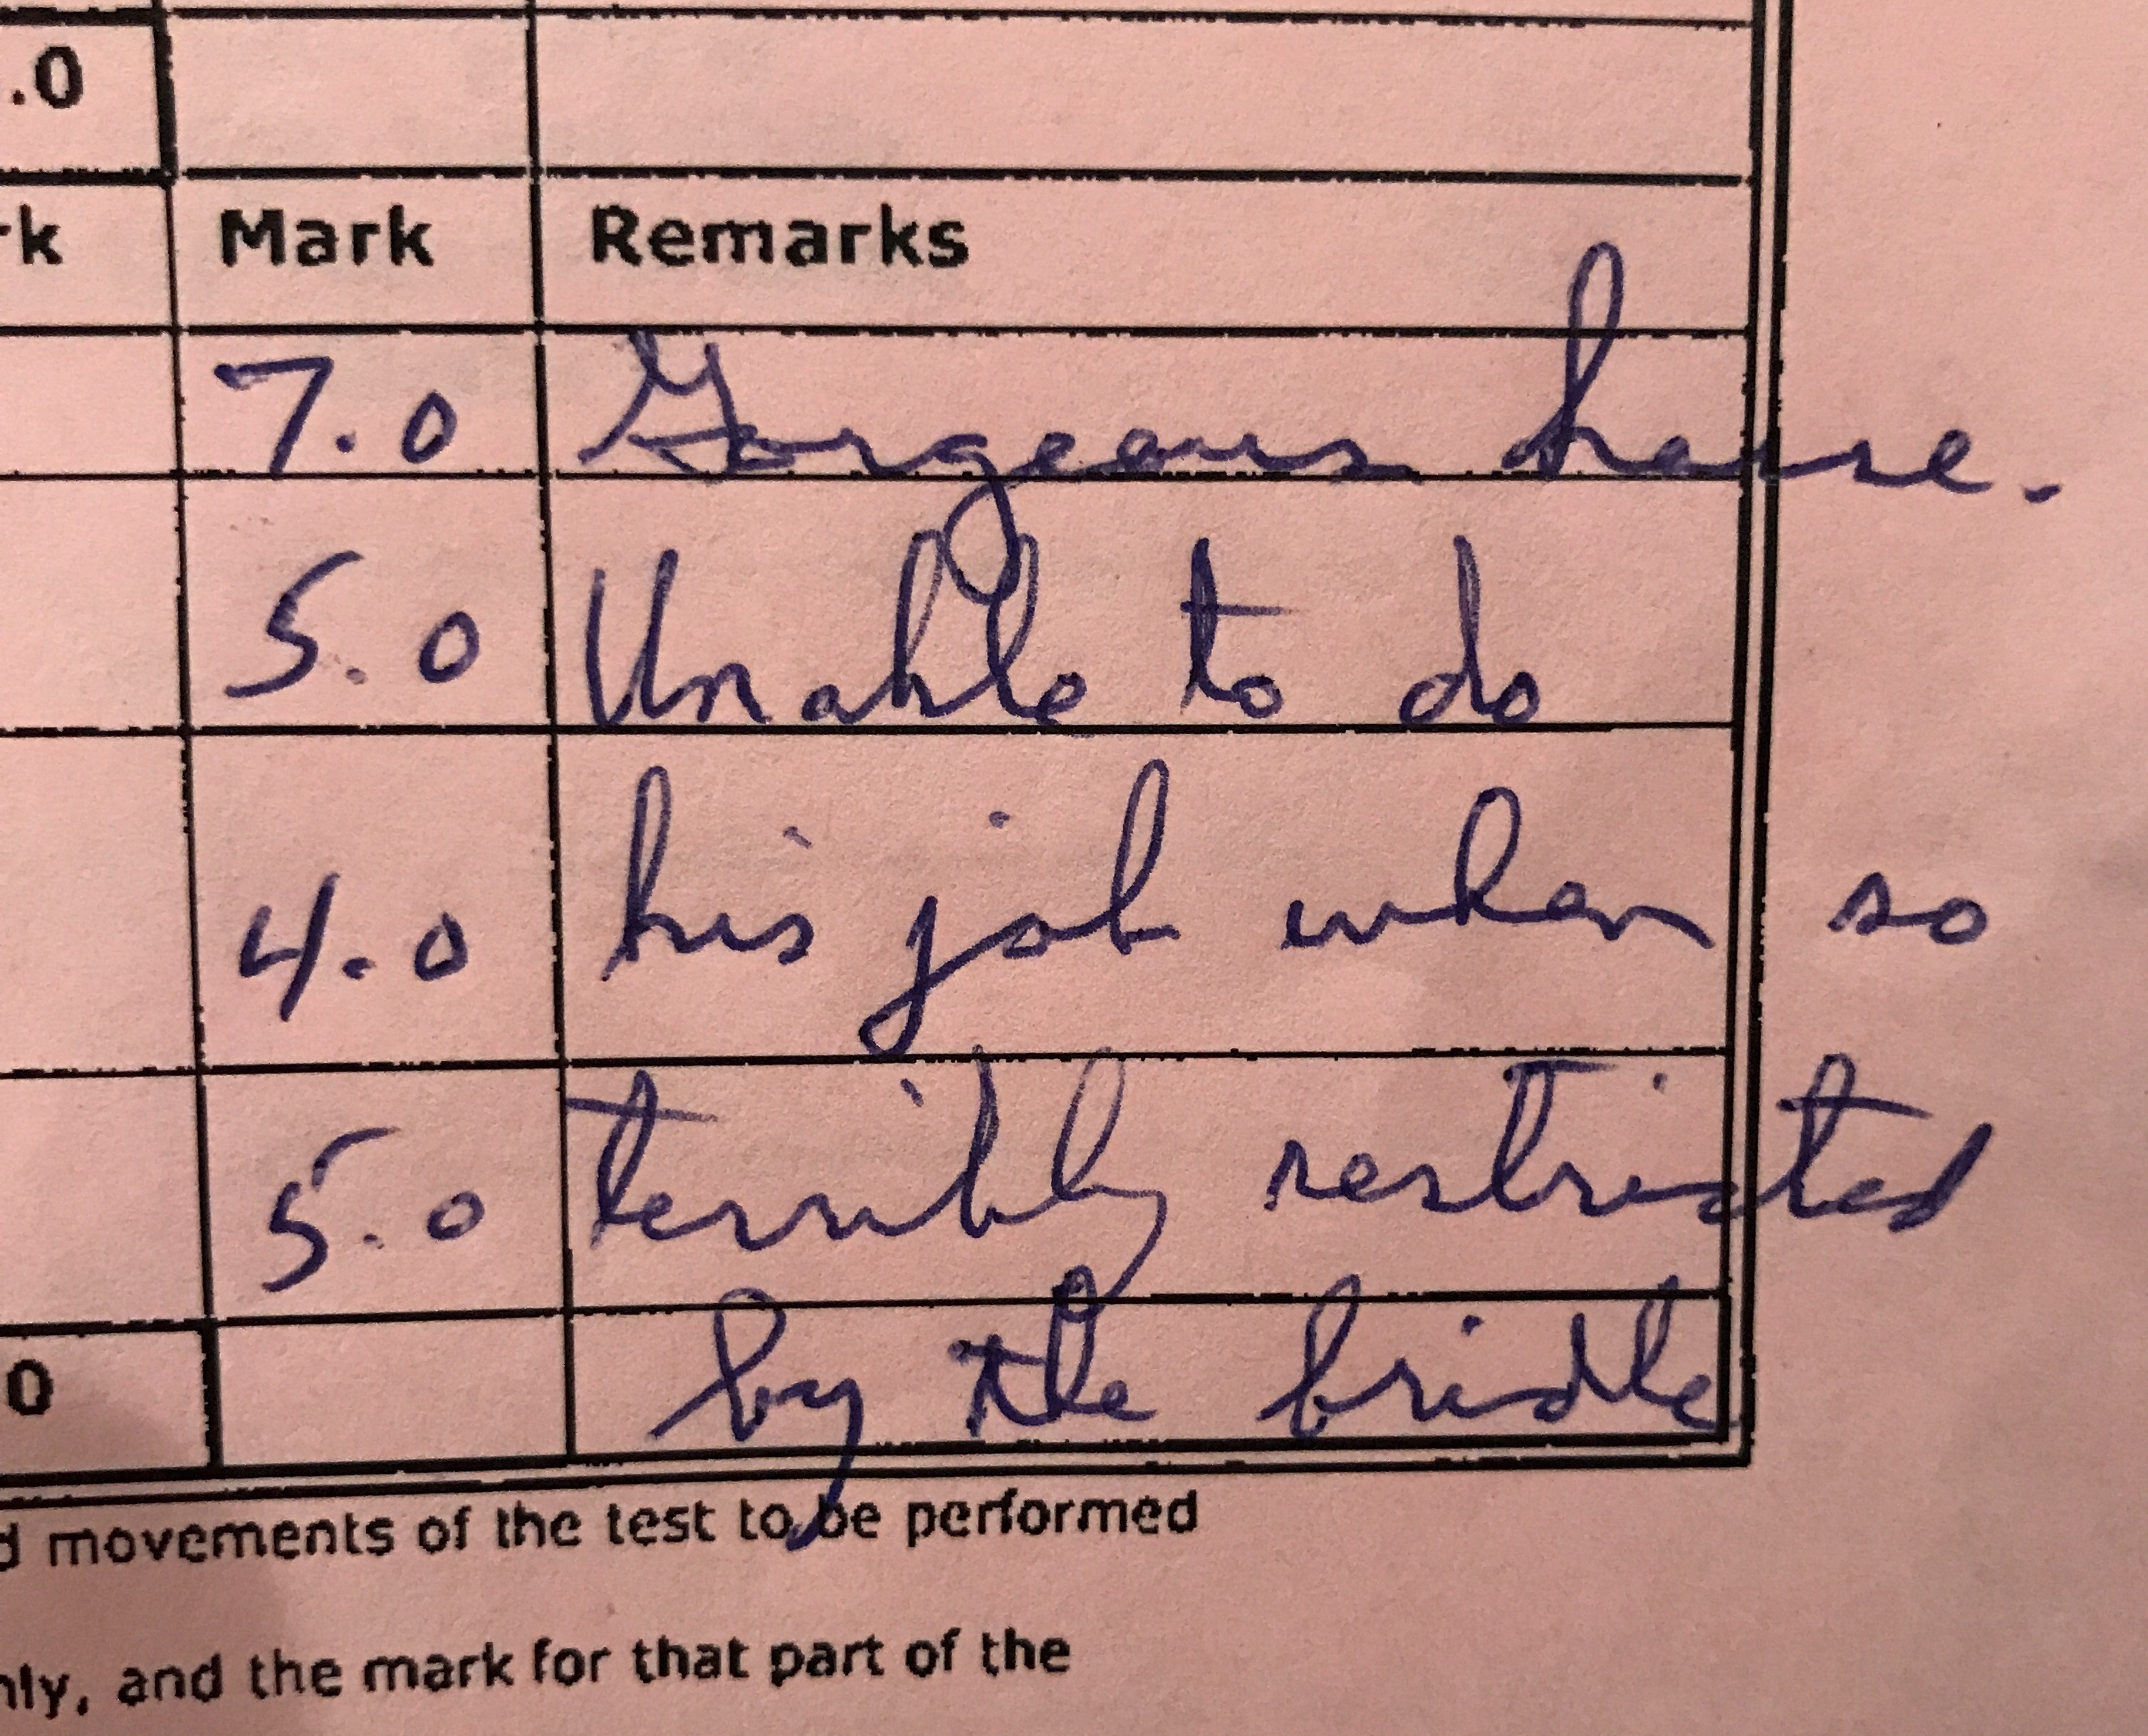 .0
rk Mark Remarks
7.0 Gorgeous horse.
5.0 Unable to do
4.0 his job when so
5.0 terribly restricted
0 by the bridle
d movements of the test to be performed
nly, and the mark for that part of the